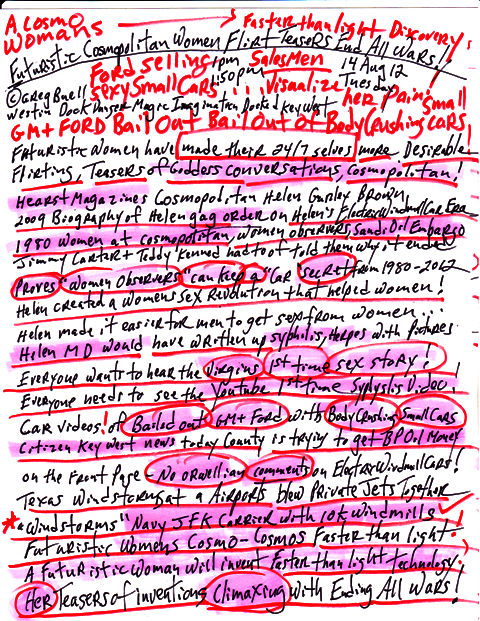 A Cosmo Womans → Faster than light Discovery!
Futuristic Cosmopolitan Women Flirt Teasers End All Wars!
Ford selling 1pm Sales Men 14 Aug 12
©Greg Buell Sexy Small Cars 1:50pm .... Visualize Tuesday
her Pain, Small
Westin Dock Hanger-Magic Imagination Docked Key West
GM + FORD Bail Out Bail Out of Body Crushing Cars
Futuristic Women have made their 24/7 selves more Desirable!
Flirting, Teasers of Goddess conversations, Cosmopolitan!
Hearst Magazines Cosmopolitan Helen Gurley Brown,
2009 Biography of Helen gag order on Helen's ElectricWindmillCar Era
1980 Women at Cosmopolitan, Women observers, Saudi Oil Embargo
Jimmy Carter + Teddy Kenned had to of told them why it ended
Proves "Women Observers" "can keep a" Car "secret" from 1980-2012
Helen created a Womens Sex Revolution that helped women!
Helen made it easier for men to get sex from women...
Helen MD would have written up syphilis, Herpes with pictures
Everyone wants to hear the Virgins 1st time sex story!
Everyone needs to see the Youtube 1st time Sypylis Video!
Car videos! of Bailed out GM + Ford with Body Crushing Small Cars
Citizen Key West news today County is trying to get BP Oil Money
on the Front Page - No Orwellian comments on ElectricWindmillCars!
Texas Windstorms at a Airports blew Private Jets Together
* "Windstorms" Navy JFK Carrier with 10K windmills!
Futuristic Womens Cosmo-Cosmos Faster than light!
A Futuristic Woman will invent Faster than light technology.
Her Teasers of inventions Climaxing with Ending All Wars!